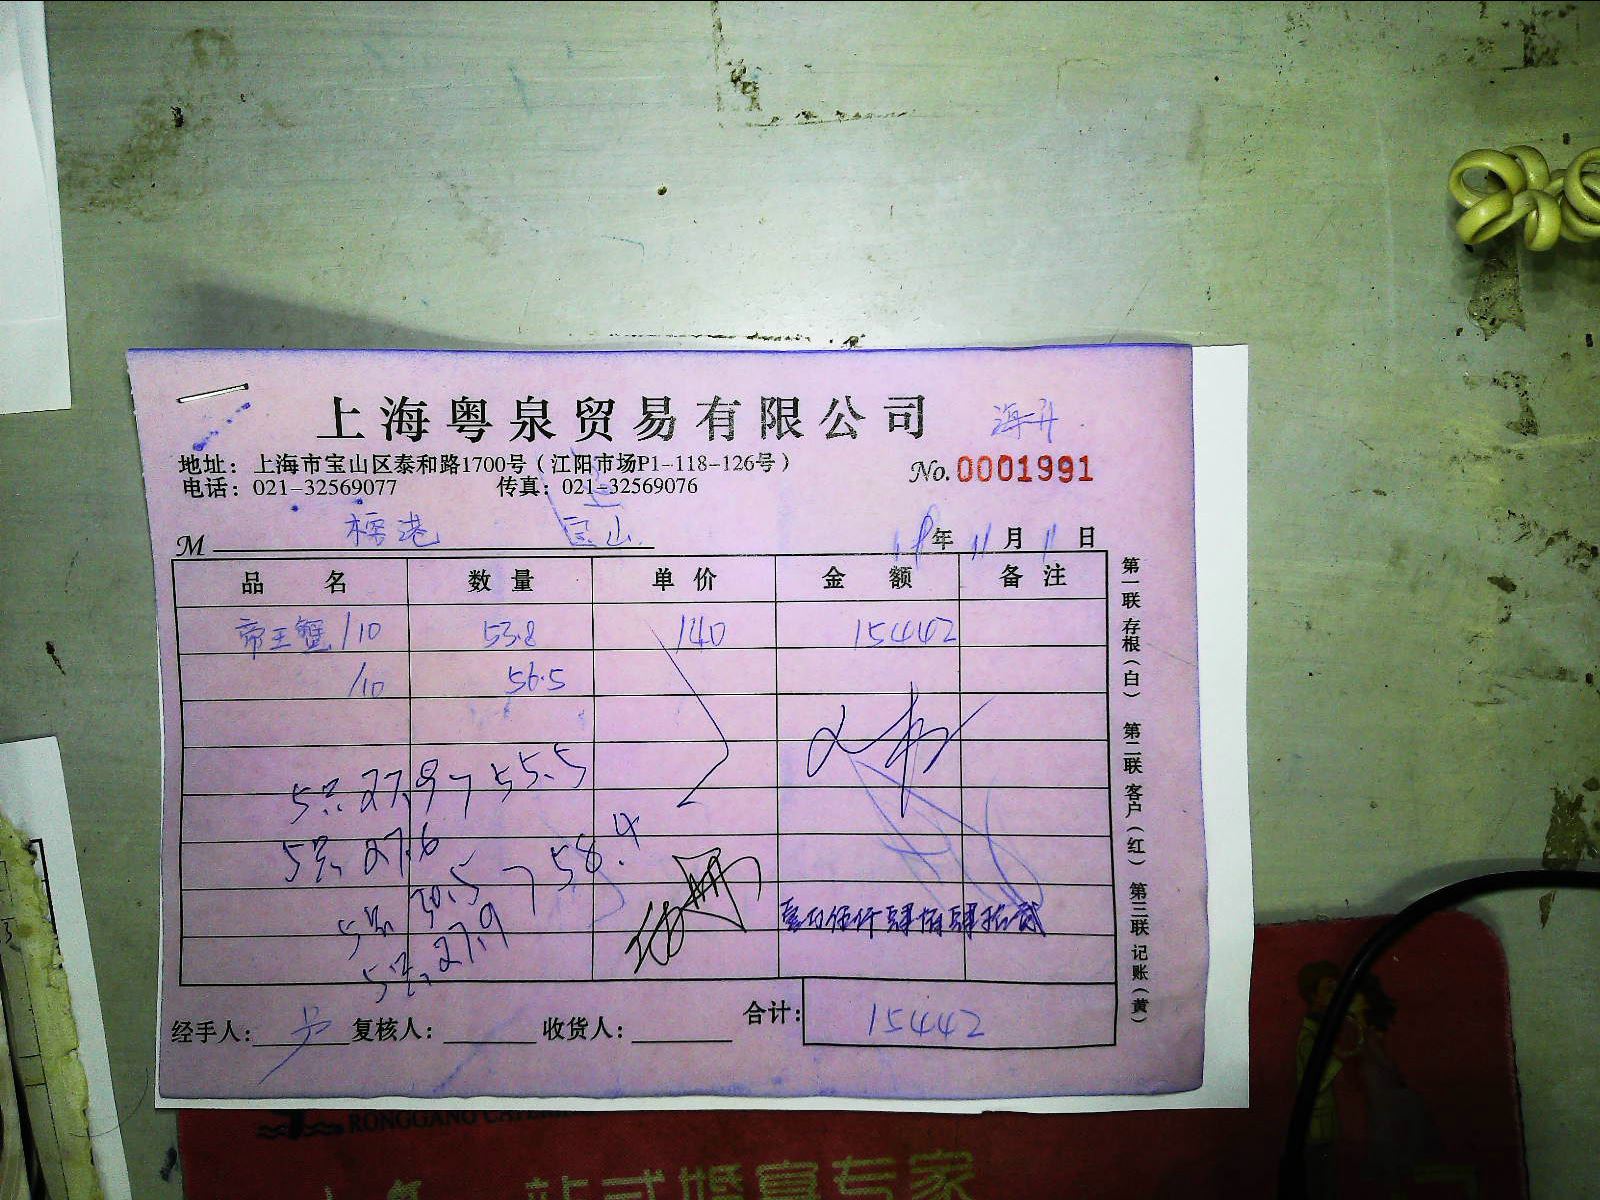 上海粤泉贸易有限公司 海升
地址：上海市宝山区泰和路1700号（江阳市场P1-118-126号）
电话：021-32569077 传真：021-32569076 No.0001991
M 榕港 宝山 18年11月11日
品名 数量 单价 金额 备注
帝王蟹/10 53.8 140 15442
/10 56.5
5只.27.9 55.5
5只.27.6
5只 30.5 58.4
5只.27.9
壹万伍仟肆佰肆拾贰
合计：15442
经手人： 复核人： 收货人：
第一联存根（白） 第二联客户（红） 第三联记账（黄）
RONGGANG
站式婚宴专家